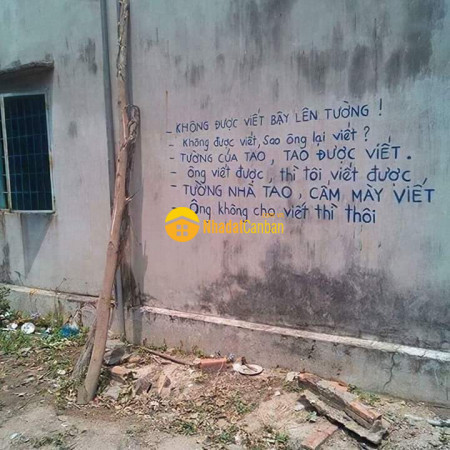 - KHÔNG ĐƯỢC VIẾT BẬY LÊN TƯỜNG !
- Không được viết, Sao ông lại viết ?
- TƯỜNG CỦA TAO, TAO ĐƯỢC VIẾT.
- ông viết được, thì tôi viết được
- TƯỜNG NHÀ TAO, CẤM MÀY VIẾT
- Ông không cho viết thì thôi
NhadatCanban